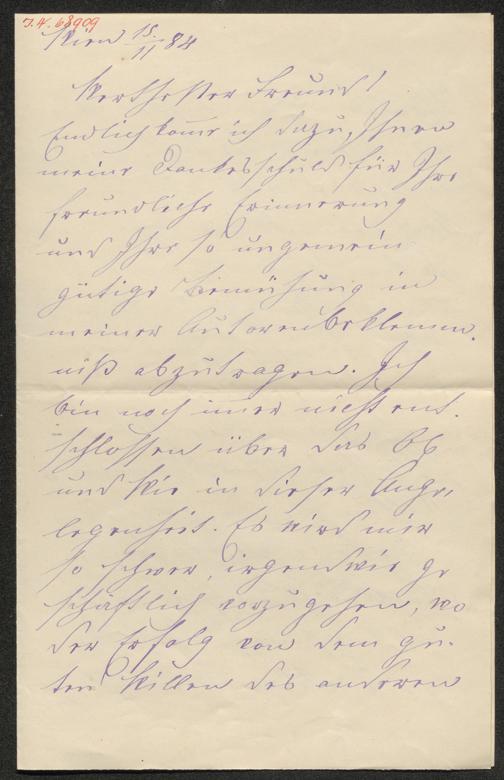 J.N. 68909
Wien 15./11 84
Werthester Freund!
Endlich komme ich dazu, Ihnen
meine Dankesschuld für Ihre
freundliche Erinnerung
und Ihre so ungemein
gütige Bemühung in
meiner Autorenbeklemm-
niß abzutragen. Ich
bin noch immer nicht ent-
schlossen über das Ob
und Wie in dieser Ange-
legenheit. Es wird mir
so schwer, irgendwie ge
schäftlich vorzugehen, wo
der Erfolg von dem gu-
ten Willen des anderen